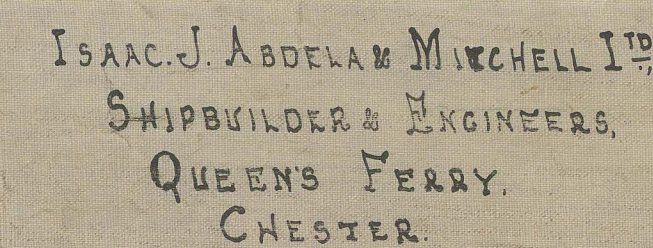 ISAAC. J. ABDELA & MITCHELL LTD.,
SHIPBUILDER & ENGINEERS,
QUEEN'S FERRY.
CHESTER.